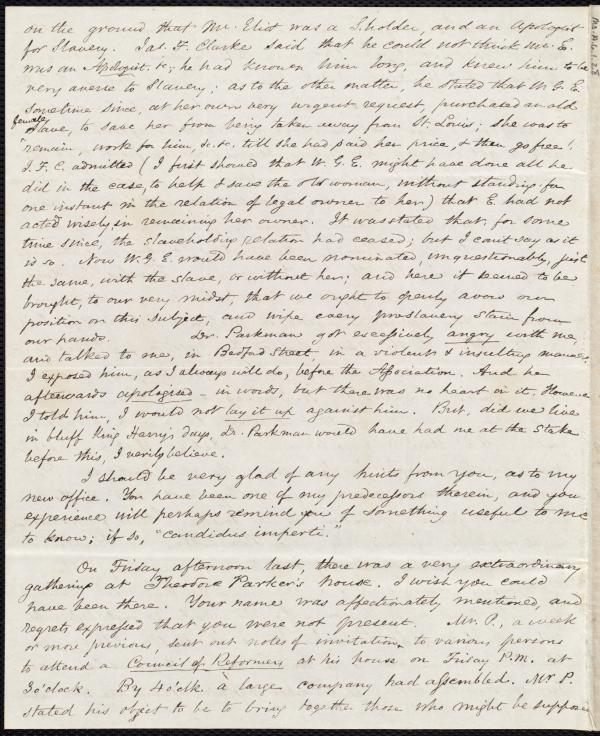 on the ground that Mr. Eliot was a S.holder, and an Apologist
for Slavery. Jas. F. Clarke said that he could not think Mr. E.
was an Apologist &c; he had known him long, and knew him to be
very averse to Slavery; as to the other matter, he stated that W. G. E.
sometime since, at her own very urgent request, purchased an old
female
slave, to save her from being taken away from St. Louis; she was to
"remain, work for him, &c. &c. till she had paid her price, & then go free".
J. F. C. admitted (I first showed that W. G. E. might have done all he
did in the case, to help & save the old woman, without standing for
one instant in the relation of legal owner to her) that E. had not
acted wisely in remaining her owner. It was stated that, for some
time since, the slaveholding relation had ceased; but I can't say as it
is so. Now W. G. E. would have been nominated, unquestionably, just
the same, with the slave, or without her; and here it seemed to be
brought, to our very midst, that we ought to openly avow our
position on this subject, and wipe every proslavery stain from
our hands. Dr. Parkman got excessively angry with me,
and talked to me, in Bedford Street, in a violent & insulting manner.
I exposed him, as I always will do, before the Association. And he
afterwards apologised – in words, but there was no heart in it. However
I told him, I would not lay it up against him. But, did we live
in bluff King Harry's days, Dr. Parkman would have had me at the Stake
before this, I verily believe.
I should be very glad of any hints from you, as to my
new office. You have been one of my predecessors therein, and your
experience will perhaps remind you of something useful to me
to know; if so, "candidus imperti."
On Friday afternoon last, there was a very extraordinary
gathering at Theodore Parker's house. I wish you could
have been there. Your name was affectionately mentioned, and
regrets expressed that you were not present. Mr. P., a week
or more previous, sent out notes of invitation, to various persons
to attend a Council of Reformers at his house on Friday P.M. at
3 o'clock. By 4 o'clk. a large company had assembled. Mr P.
stated his object to be to bring together those who might be supposed